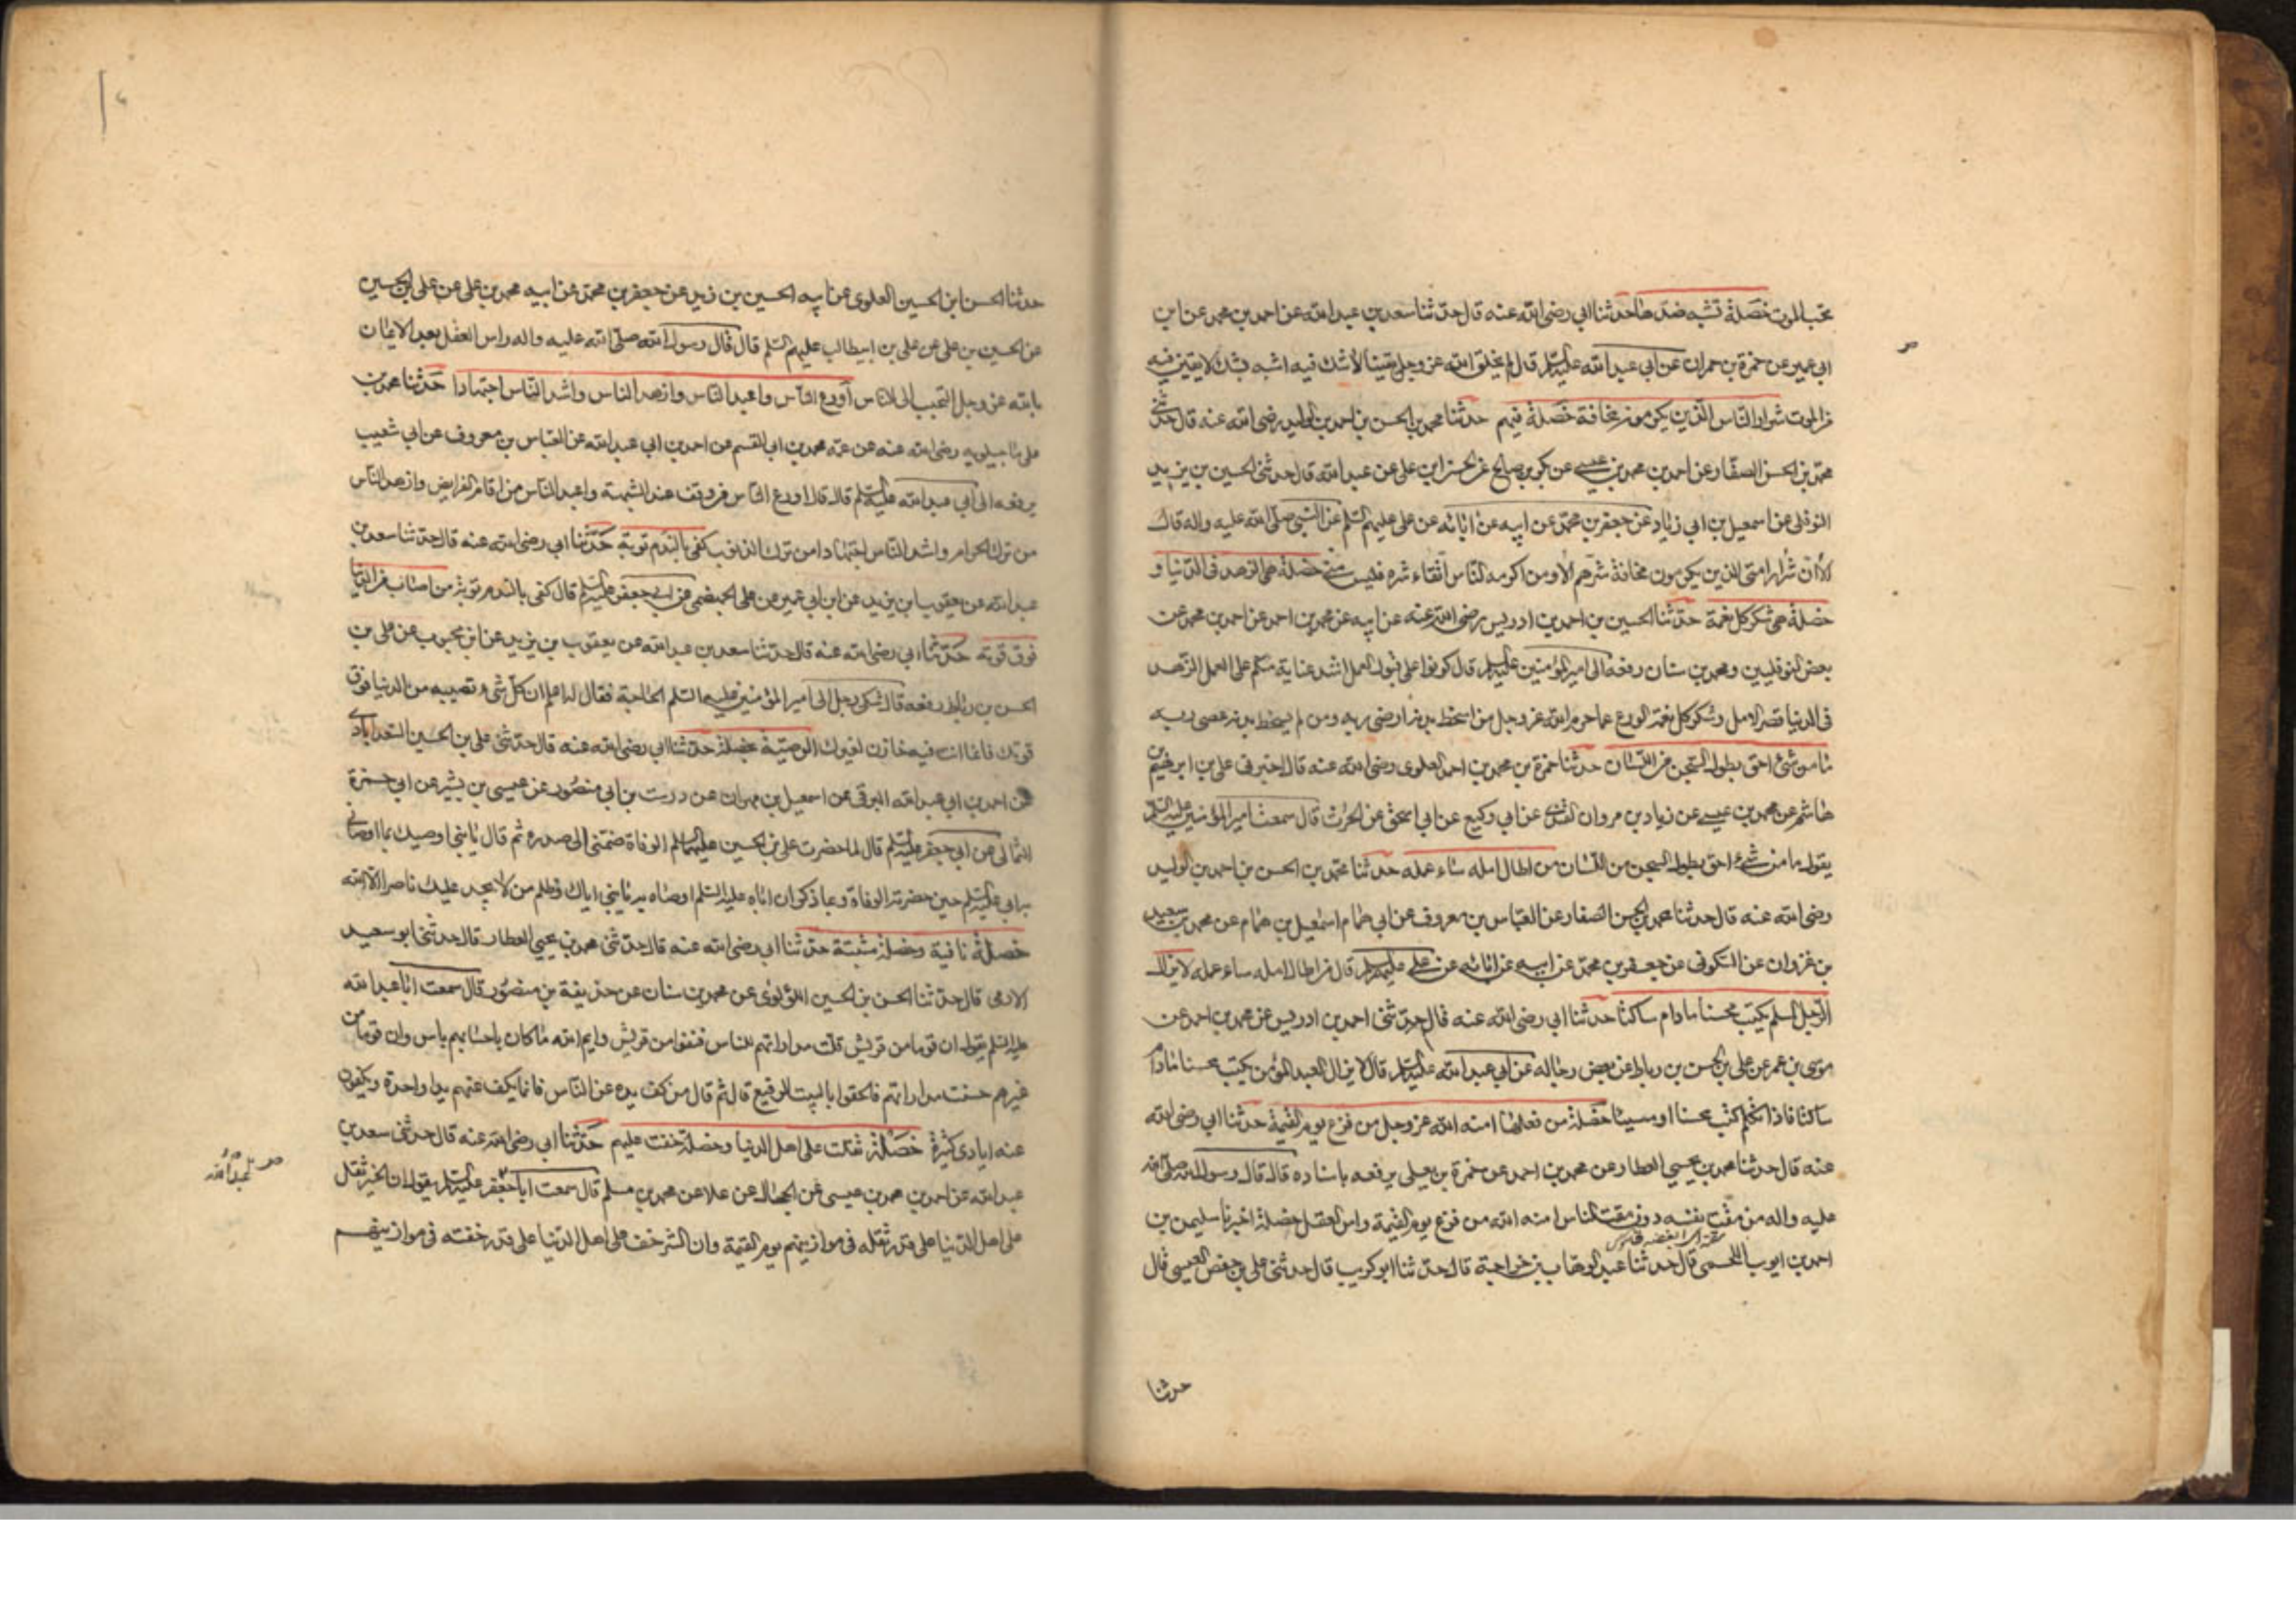 تحب الموت خصلة تشبه ضدها حدثنا ابي رضى الله عنه قال حدثنا سعد بن عبد الله عن احمد بن محمد عن ابن
ابي عمير عن حمزة بن حمران عن ابي عبد الله عليه السلم قال لم يخلق الله عز وجل يقينا لا شك فيه اشبه بشك لا يقين فيه
من الموت شرار الناس الذين يكرمون مخافة خصلة فيهم حدثنا محمد بن الحسن بن احمد بن الوليد رضى الله عنه قال حدثنى
محمد بن الحسن الصفار عن احمد بن محمد بن عيسى عن بكر بن صالح عن الحسن ابن على عن عبد الله قال حدثنى الحسين بن يزيد
النوفلى عن اسمعيل بن ابي زياد عن جعفر بن محمد عن ابيه عن ابائه عن على عليهم السلم عن النبي صلى الله عليه واله قال
الا ان شرار امتى الذين يكرمون مخافة شرهم الا ومن اكرمه الناس اتقاء شره فليس منى خصلة هي الزهد فى الدنيا و
خصلة هى شكر كل نعمة حدثنا الحسين بن احمد بن ادريس رضى الله عنه عن ابيه عن محمد بن احمد عن احمد بن محمد عن
بعض النوفليين ومحمد بن سنان رفعه الى امير المؤمنين عليه السلم قال كونوا على قبول العمل اشد عناية منكم على العمل الزهد
فى الدنيا قصر الامل وشكر كل نعمة الورع عما حرم الله عز وجل من اسخط بدنه ارضى ربه ومن لم يسخط بدنه عصى ربه
ما من شئ احق بطول السجن من اللسان حدثنا حمزة بن محمد بن احمد العلوى رضى الله عنه قال اخبرنى على بن ابرهيم بن
هاشم عن محمد بن عيسى عن زياد بن مروان القندى عن ابي وكيع عن ابي اسحق عن الحرث قال سمعت امير المؤمنين عليه السلم
يقول ما من شئ احق بطول السجن من اللسان من اطال امله ساء عمله حدثنا محمد بن الحسن بن احمد بن الوليد
رضى الله عنه قال حدثنا محمد بن الحسن الصفار عن العباس بن معروف عن ابي همام اسمعيل بن همام عن محمد بن سعيد
بن غزوان عن السكونى عن جعفر بن محمد عن ابيه عن ابائه عن على عليهم السلم قال من اطال امله ساء عمله لا يزال
الرجل المسلم يكتب محسنا مادام ساكتا حدثنا ابي رضى الله عنه قال حدثنى احمد بن ادريس عن محمد بن احمد عن
موسى بن عمر عن على بن الحسن بن رباط عن بعض رجاله عن ابي عبد الله عليه السلم قال لا يزال العبد المؤمن يكتب محسنا مادام
ساكتا فاذا تكلم كتب محسنا او مسيئا خصلة من فعلها امنه الله عز وجل من فزع يوم القيمة حدثنا ابي رضى الله
عنه قال حدثنا محمد بن يحيى العطار عن محمد بن احمد عن حمزة بن يعلى يرفعه باسناده قال قال رسول الله صلى الله
عليه واله من مقت نفسه دون مقت الناس امنه الله من فزع يوم القيمة راس العقل خصلة اخبرنا سليمن بن
احمد بن ايوب اللخمى قال حدثنا عبد الوهاب بن خراجة قال حدثنا ابو كريب قال حدثنى على بن حفص العبسى قال
حدثنا
حدثنا الحسن ابن الحسين العلوى عن ابيه الحسين بن زيد عن جعفر بن محمد عن ابيه محمد بن على عن على بن الحسين
عن الحسين بن على عن على بن ابيطالب عليهم السلم قال قال رسول الله صلى الله عليه واله راس العقل بعد الايمان
بالله عز وجل التحبب الى الناس أورع الناس واعبد الناس وازهد الناس واشد الناس اجتهادا حدثنا محمد بن
على ماجيلويه رضى الله عنه عن عمه محمد بن ابي القسم عن احمد بن ابي عبد الله عن العباس بن معروف عن ابي شعيب
يرفعه الى ابي عبد الله عليه السلم قال قال اورع الناس من وقف عند الشبهة واعبد الناس من اقام الفرايض وازهد الناس
من ترك الحرام واشد الناس اجتهادا من ترك الذنوب كفى بالندم توبة حدثنا ابي رضى الله عنه قال حدثنا سعد بن
عبد الله عن يعقوب ابن يزيد عن ابن ابي عمير عن على الجهضمى عن ابي جعفر عليه السلم قال كفى بالندم توبة من اصاب من الدنيا
فوق قوته حدثنا ابي رضى الله عنه قال حدثنا سعد بن عبد الله عن يعقوب بن يزيد عن ابن محبوب عن على بن
الحسن بن رباط رفعه قال شكى رجل الى امير المؤمنين عليه السلم الحاجة فقال له اعلم ان كل شئ تصيبه من الدنيا فوق
قوتك فانما انت فيه خازن لغيرك الوصية بخصلة حدثنا ابي رضى الله عنه قال حدثنى على بن الحسين السعدابادى
عن احمد بن ابي عبد الله البرقى عن اسمعيل بن مهران عن درست بن ابي منصور عن عيسى بن بشير عن ابي حمزة
الثمالى عن ابي جعفر عليه السلم قال لما حضرت على بن الحسين عليهما السلم الوفاة ضمنى الى صدره ثم قال يا بنى اوصيك بما اوصانى
به ابي عليه السلم حين حضرته الوفاة وبما ذكر ان اباه عليه السلم اوصاه به يا بنى اياك وظلم من لا يجد عليك ناصرا الا الله
خصلة نافية وخصلة مثبتة حدثنا ابي رضى الله عنه قال حدثنى محمد بن يحيى العطار قال حدثنى ابو سعيد
الادمى قال حدثنا الحسن بن الحسين اللؤلؤى عن محمد بن سنان عن حذيفة بن منصور قال سمعت ابا عبد الله
عليه السلم يقول ان قوما من قريش قلت مداراتهم للناس فنفوا من قريش وايم الله ما كان باحسابهم باس وان قوما من
غيرهم حسنت مداراتهم فالحقوا بالبيت الرفيع قال ثم قال من كف يده عن الناس فانما يكف عنهم يدا واحدة ويكفون
عنه ايادى كثيرة خصلة ثقلت على اهل الدنيا وخصلة خفت عليهم حدثنا ابي رضى الله عنه قال حدثنى سعد بن
عبد الله عن احمد بن محمد بن عيسى عن الحجال عن علا عن محمد بن مسلم قال سمعت ابا جعفر عليه السلم يقول ان الخير ثقل
على اهل الدنيا على قدر ثقله فى موازينهم يوم القيمة وان الشر خف على اهل الدنيا على قدر خفته فى موازينهم